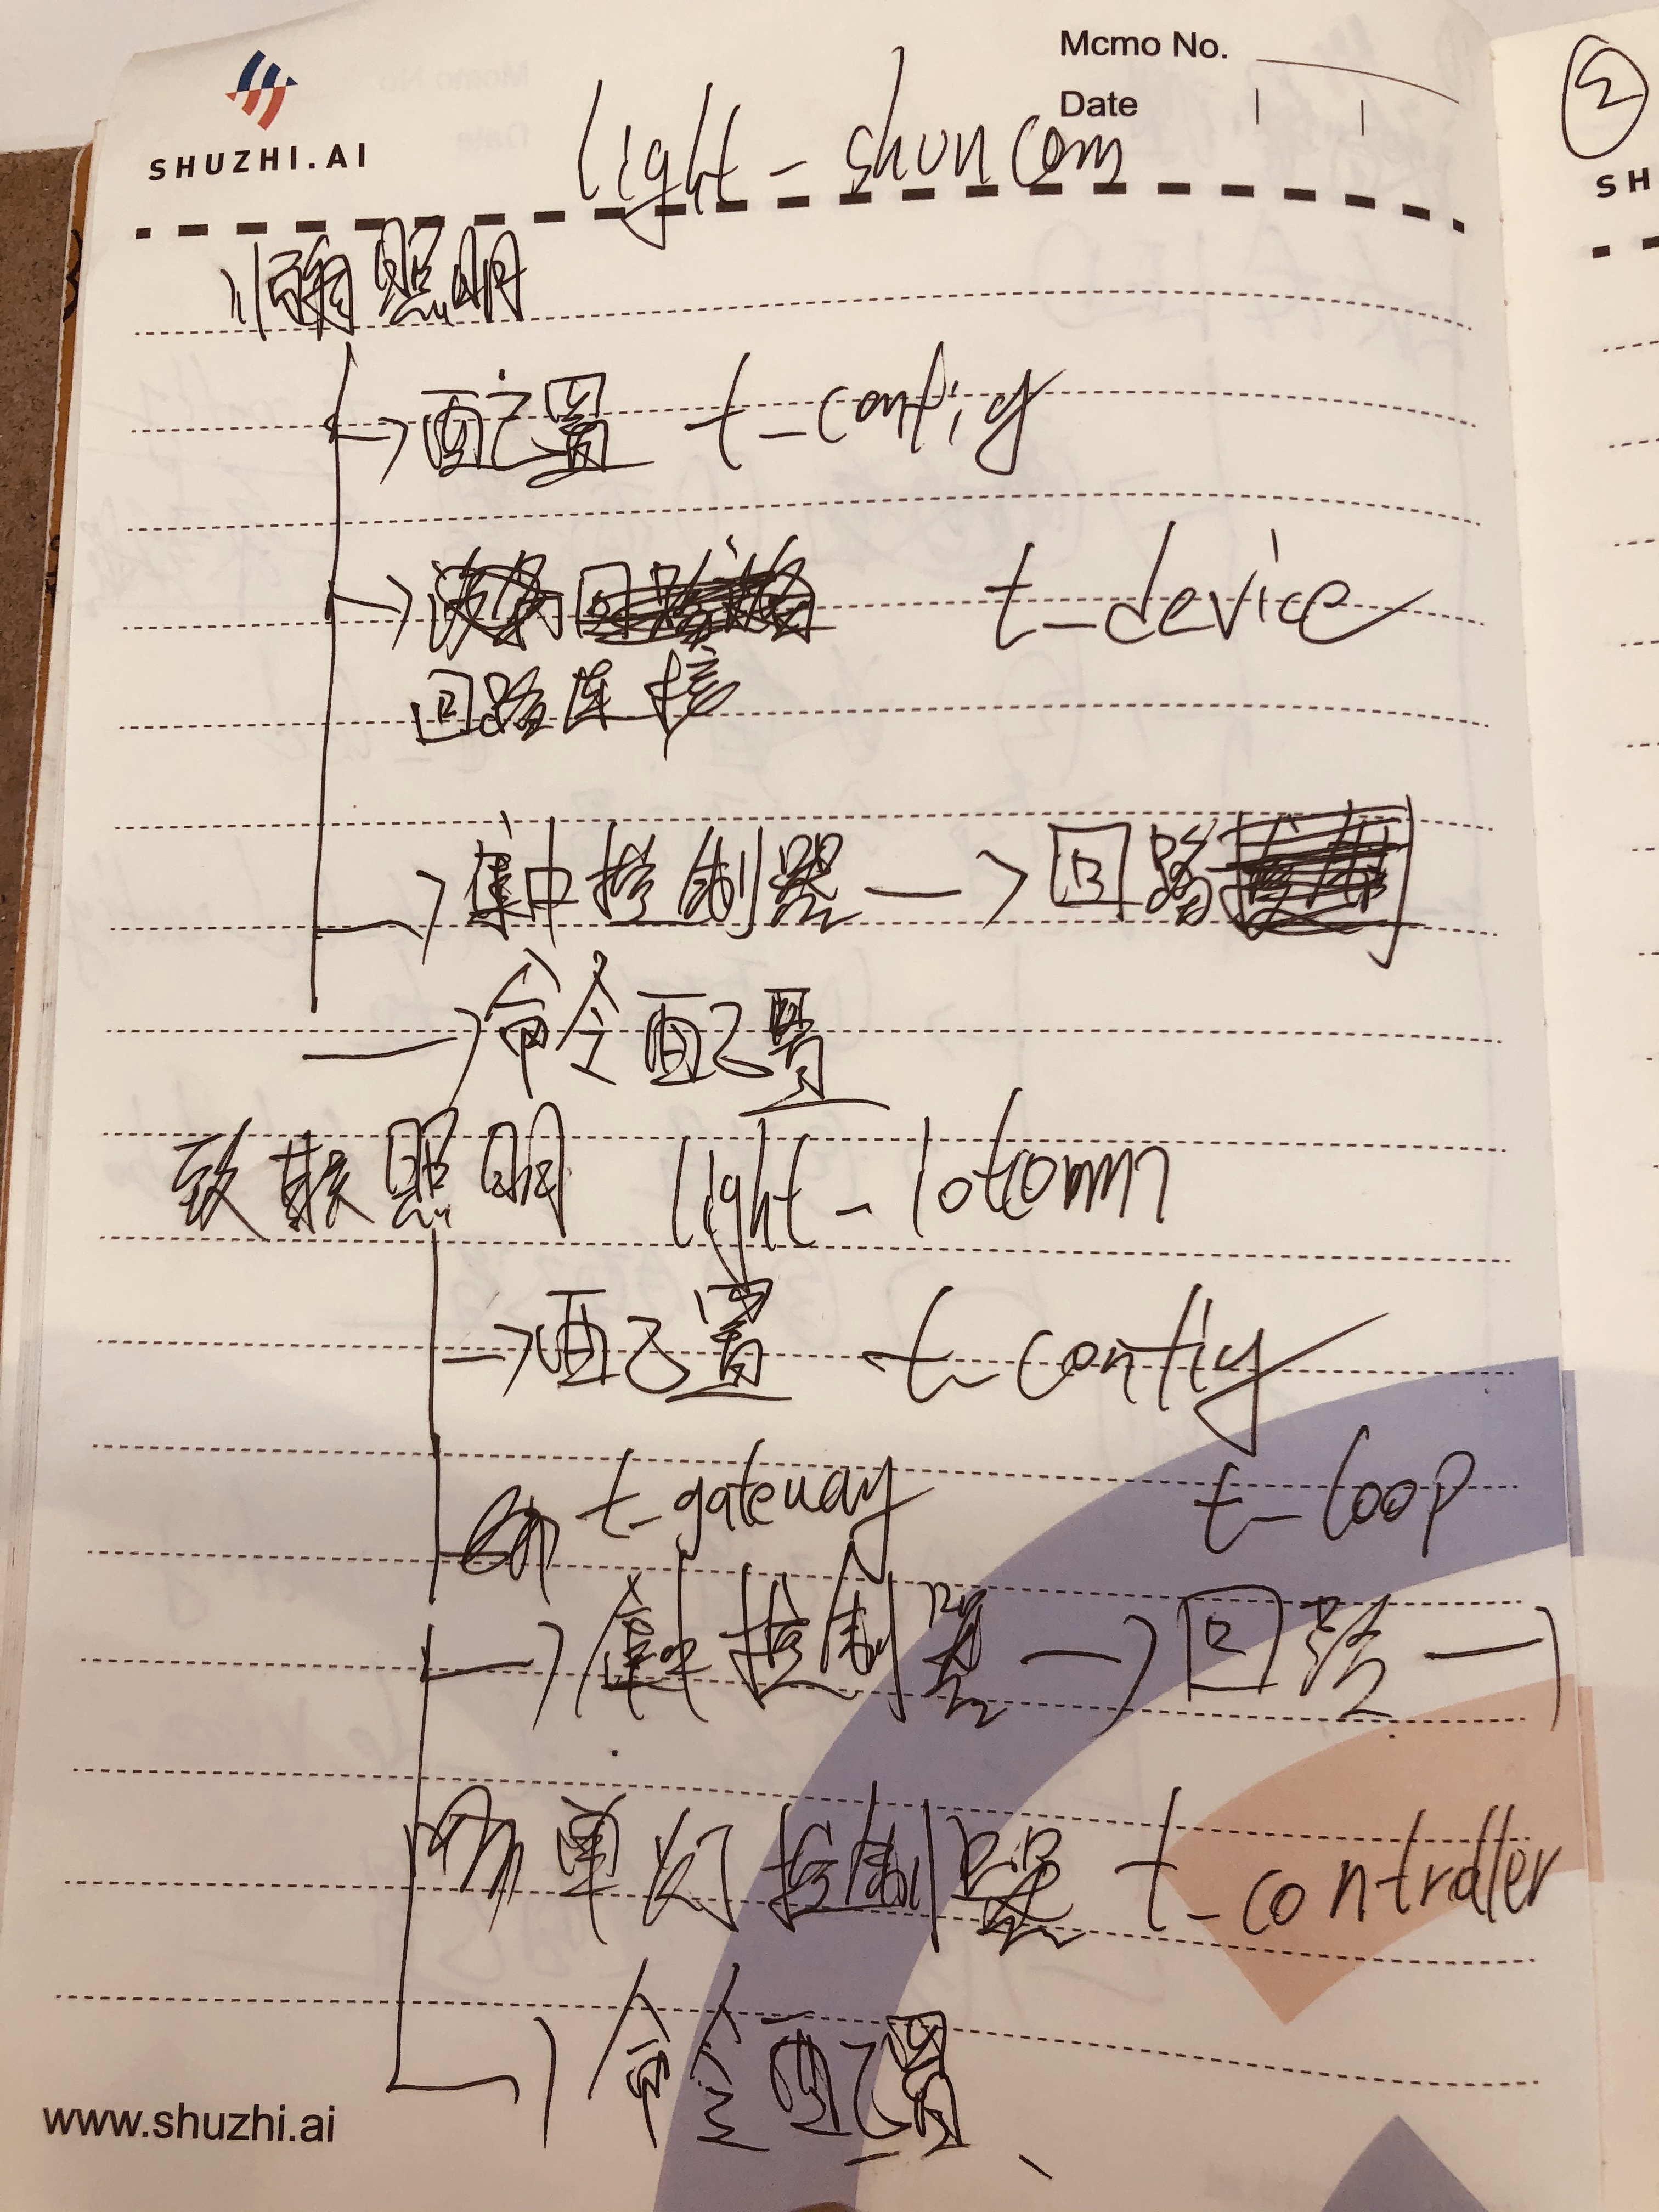 Memo No.
SHUZHI.AI
Date
light - shuncom
顺舟照明
→配置 t_config
→ t_device
回路连接
→集中控制器 → 回路
→命令配置
致联照明 light - lotcomm
→配置 t_config
t_gateway t_loop
→集中控制器 → 回路 →
单灯控制器 t_controller
→命令配置
www.shuzhi.ai
2
SH